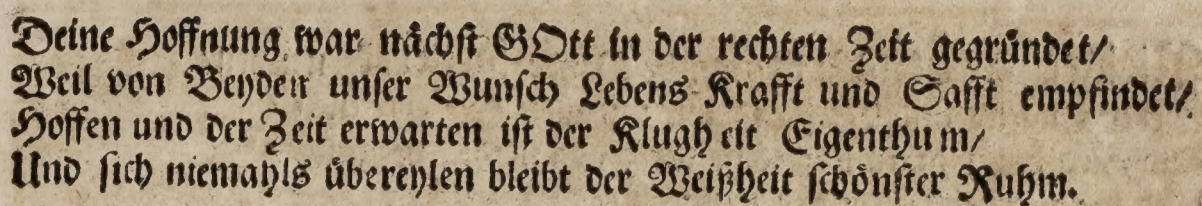 Deine Hoffnung war nächst GOtt in der rechten Zeit gegründet/
Weil von Beyden unser Wunsch Lebens Krafft und Safft empfindet/
Hoffen und der Zeit erwarten ist der Klugheit Eigenthum/
Und sich niemahls übereylen bleibt der Weißheit schönster Ruhm.